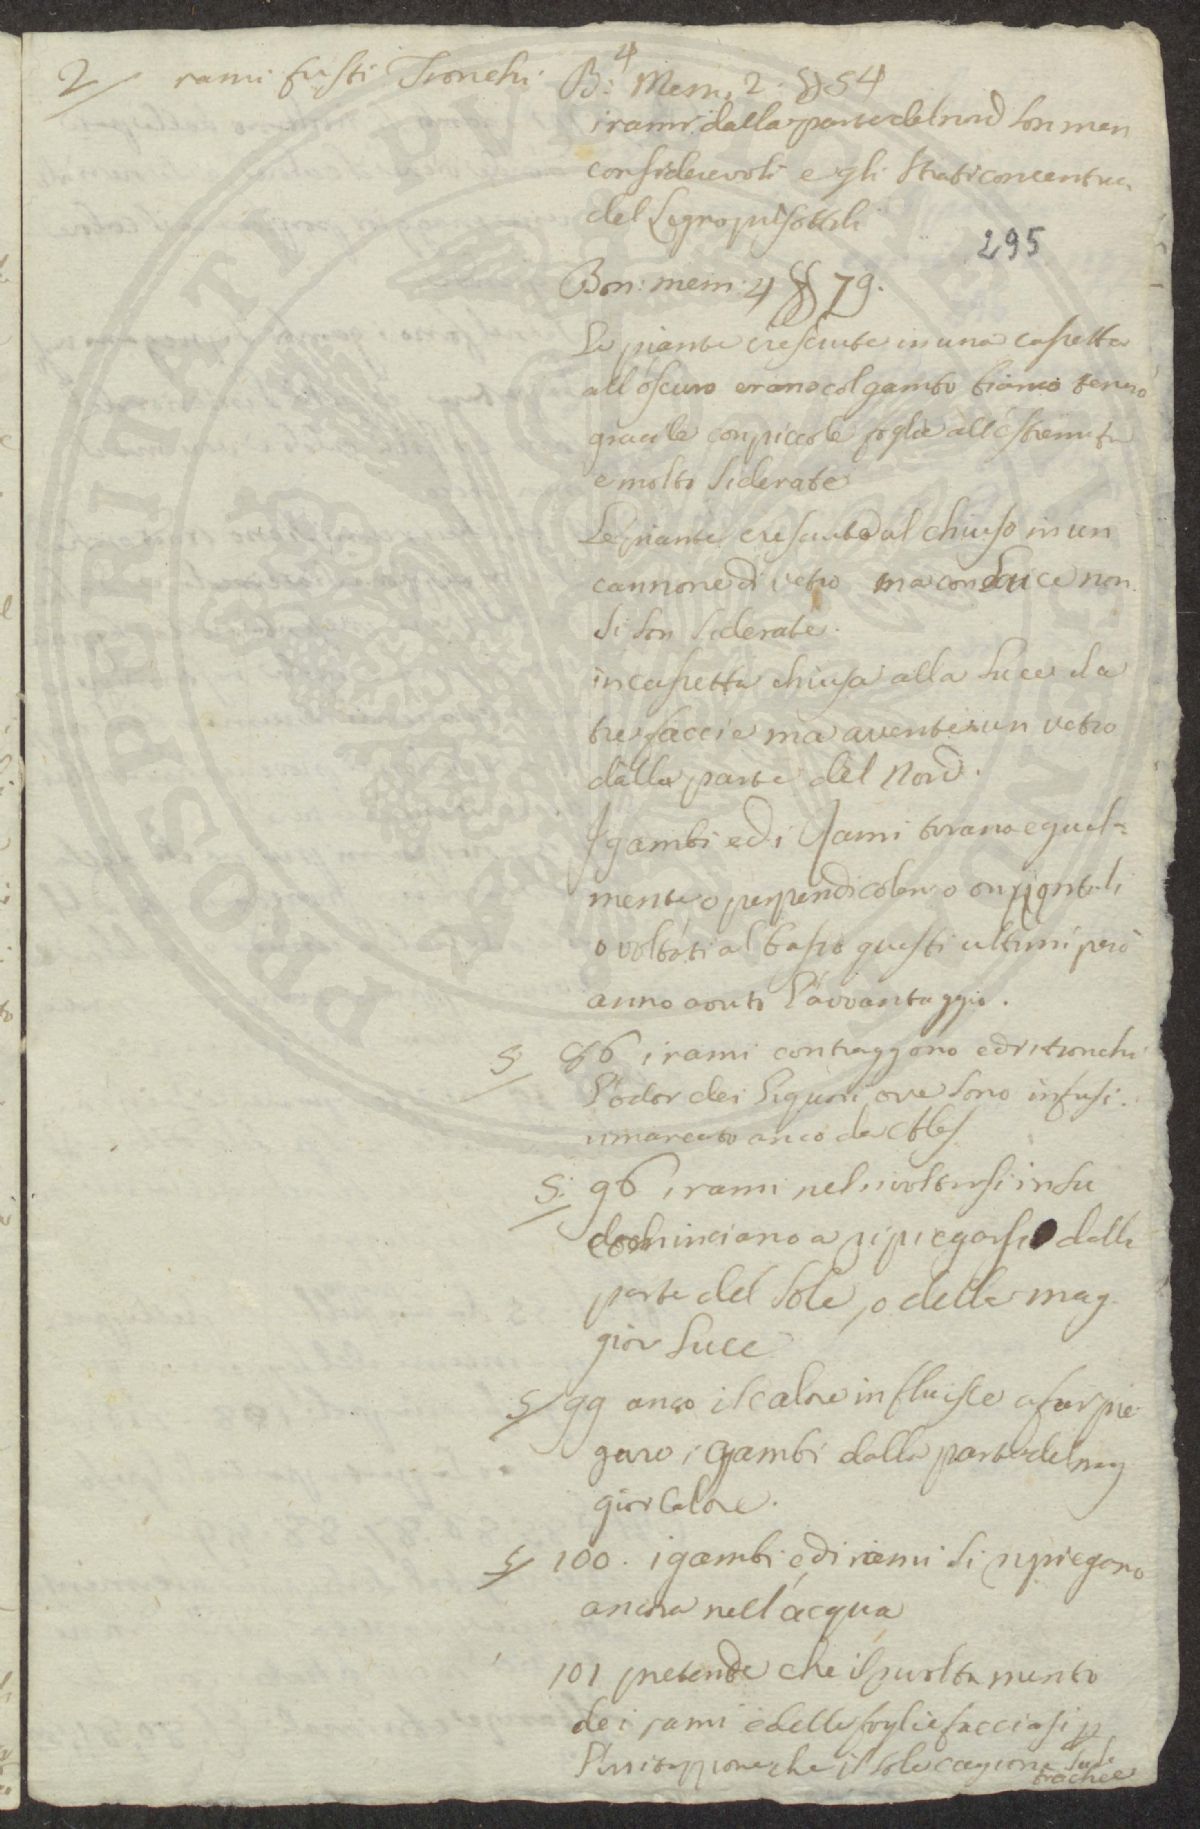 2/ rami fusti Tronchi
B: 4 Mem. 2. § 54
i rami dalla parte del nord son men
considerevoli e gli strati concentrici
del Legno più sottili
295
Bon: mem: 4 § 79.
Le piante cresciute in una cassetta
all'oscuro erano col gambo bianco tenero
gracile con piccole foglie all'estremità
e molto siderate
Le piante cresciute al chiuso in un
cannone di vetro ma con luce non
si son siderate.
in cassetta chiusa alla luce da
tre faccie ma avente un vetro
dalla parte del Nord.
I gambi ed i Rami tirano egual=
mente o perpendicolari o orizontali
o voltati al basso questi ultimi però
anno avuto l'avvantaggio.
S/ 86 i rami contraggono ed i tronchi
l'odor dei liquori ove sono infusi.
rimarcato anco da
S/ 96 i rami nel rivoltarsi in su
cominciano a ripiegarsi dalla
parte del Sole, o della mag
gior Luce
S/ 99 anco il calore influisce a far pie
gare i Gambi dalla parte del mag
gior Calore.
S/ 100. i gambi ed i rami si ripiegano
ancora nell'acqua
101 pretende che il rivoltamento
dei rami e delle foglie facciasi p
che il Sole cagiona